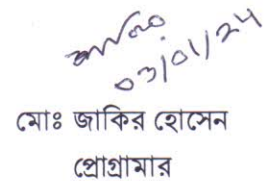 03/01/24
মোঃ জাকির হোসেন
প্রোগ্রামার